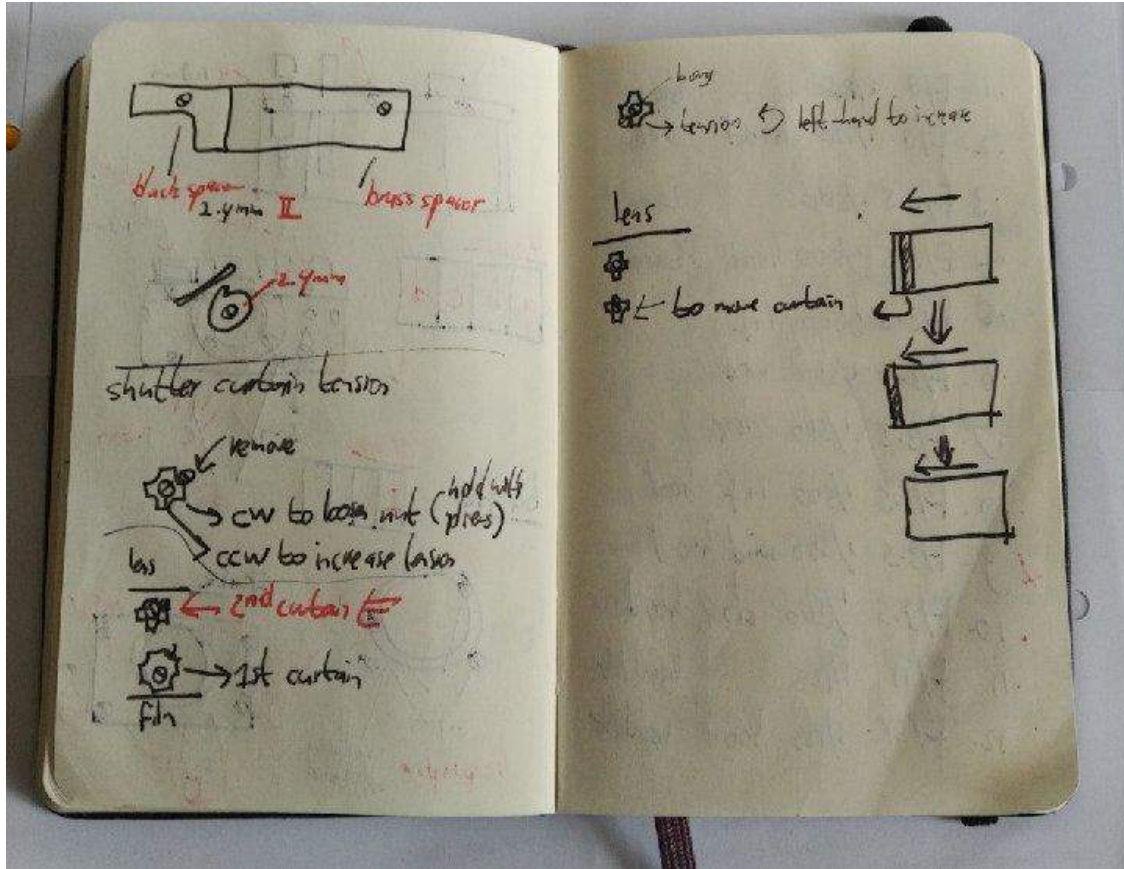 2.4mm II
brass spacer
2.4mm
shutter curtain tension
remove
cw to loosen nut (hold with
pliers)
ccw to increase tension
lens
← 2nd curtain
→ 1st curtain
film
→ tension left-hand to increase
lens
← to move curtain